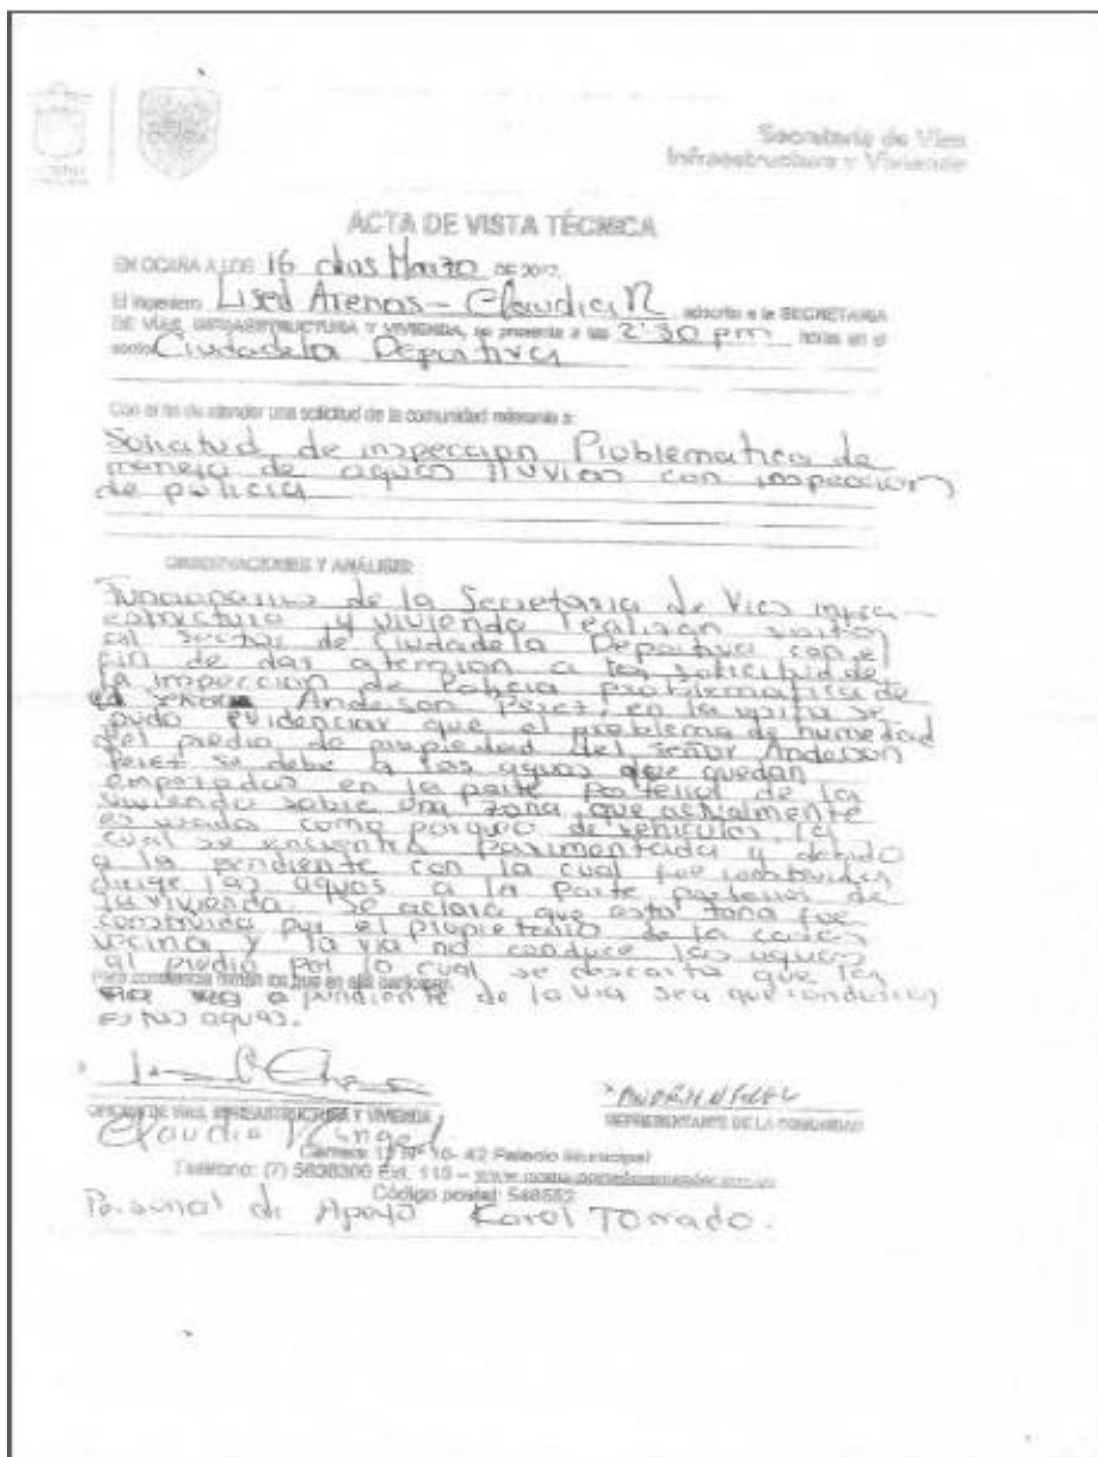 Secretaría de Vías
Infraestructura y Vivienda
ACTA DE VISTA TÉCNICA
EN OCAÑA A LOS 16 dias Marzo DE 2017.
El ingeniero Lised Arenas - Claudia R adscrito a la SECRETARIA
DE VÍAS, INFRAESTRUCTURA Y VIVIENDA, se presenta a las 2:30 pm horas en el
sector Ciudadela Deportiva
Con el fin de atender una solicitud de la comunidad referente a:
Solicitud de inspeccion Problematica de
manejo de aguas lluvias con inspeccion
de policia
OBSERVACIONES Y ANÁLISIS:
Funcionarios de la Secretaria de Vias infra-
estructura y vivienda realizan visita
al sector de Ciudadela Deportiva con el
fin de dar atencion a la solicitud de
la inspeccion de Policia problematica de
Anderson Perez, en la visita se
pudo evidenciar que el problema de humedad
del predio de propiedad del señor Anderson
Perez se debe a las aguas que quedan
empozadas en la parte posterior de la
vivienda sobre una zona que actualmente
es usada como parqueo de vehiculos la
cual se encuentra pavimentada y debido
a la pendiente con la cual fue construida
dirige las aguas a la parte posterior de
la vivienda. Se aclara que esta zona fue
construida por el propietario de la casa
vecina y la via no conduce las aguas
al predio por lo cual se descarta que la
Para constancia firman los que en ella participan:
pendiente de la via sea que conduzca
estas aguas.
OFICINA DE VIAS, INFRAESTRUCTURA Y VIVIENDA
REPRESENTANTE DE LA COMUNIDAD
Claudia Rangel
Carrera 12 Nº 10- 42 Palacio Municipal
Teléfono: (7) 5636300 Ext. 110 –
Código postal: 546552
Personal de Apoyo Karol Torrado.